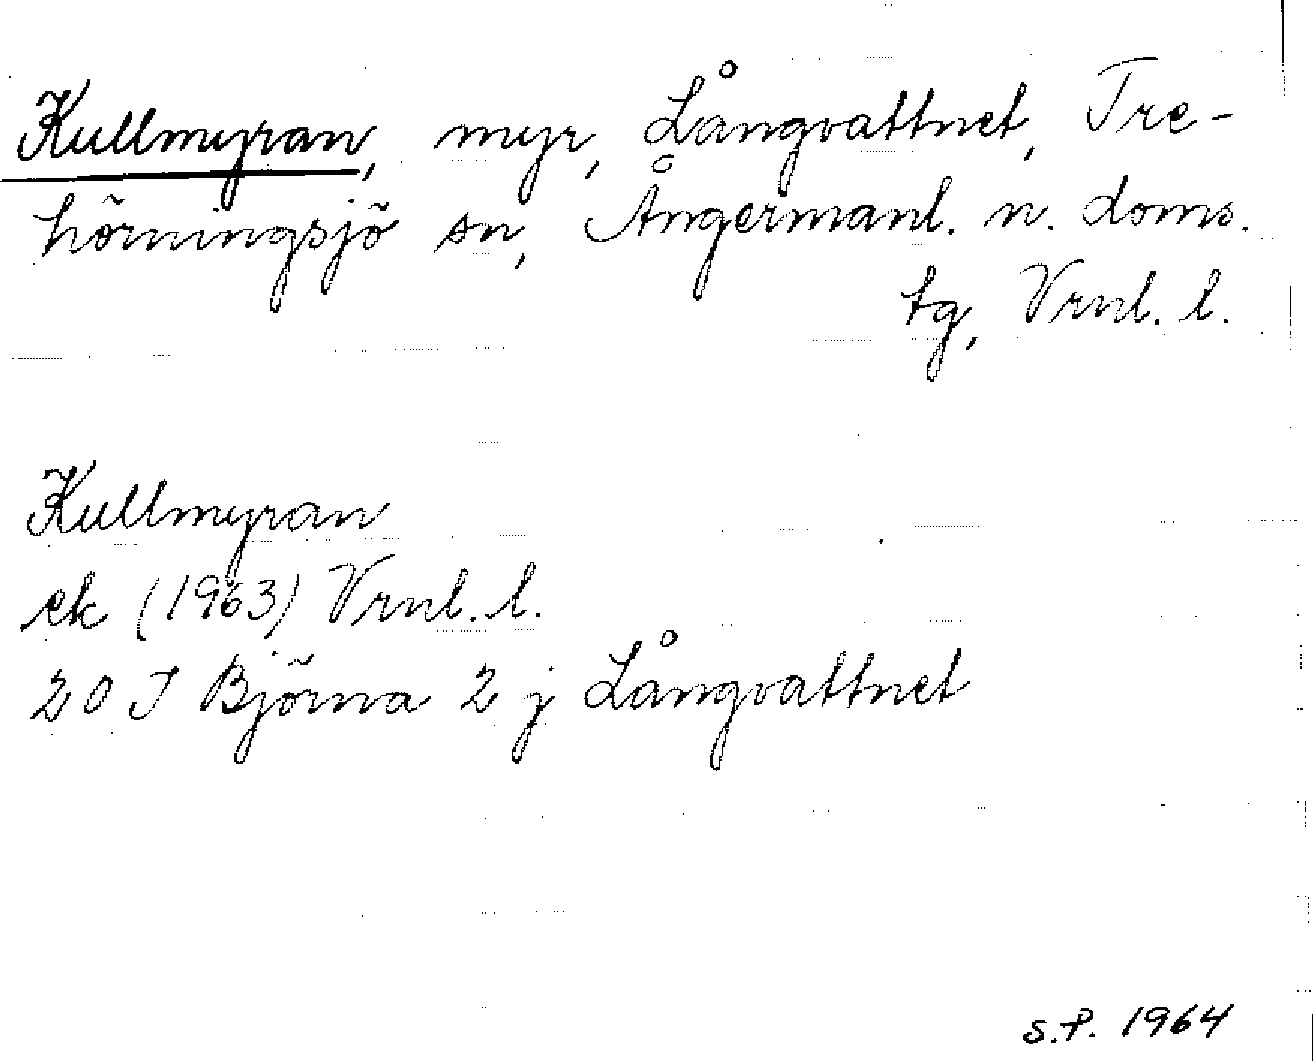 Kullmyran, myr, Långvattnet, Tre-
hörningsjö sn, Ångermanl. n. doms.
tg, Vrnl. l.
Kullmyran
ek (1963) Vrnl. l.
20 J Björna 2 j Långvattnet
S.P. 1964